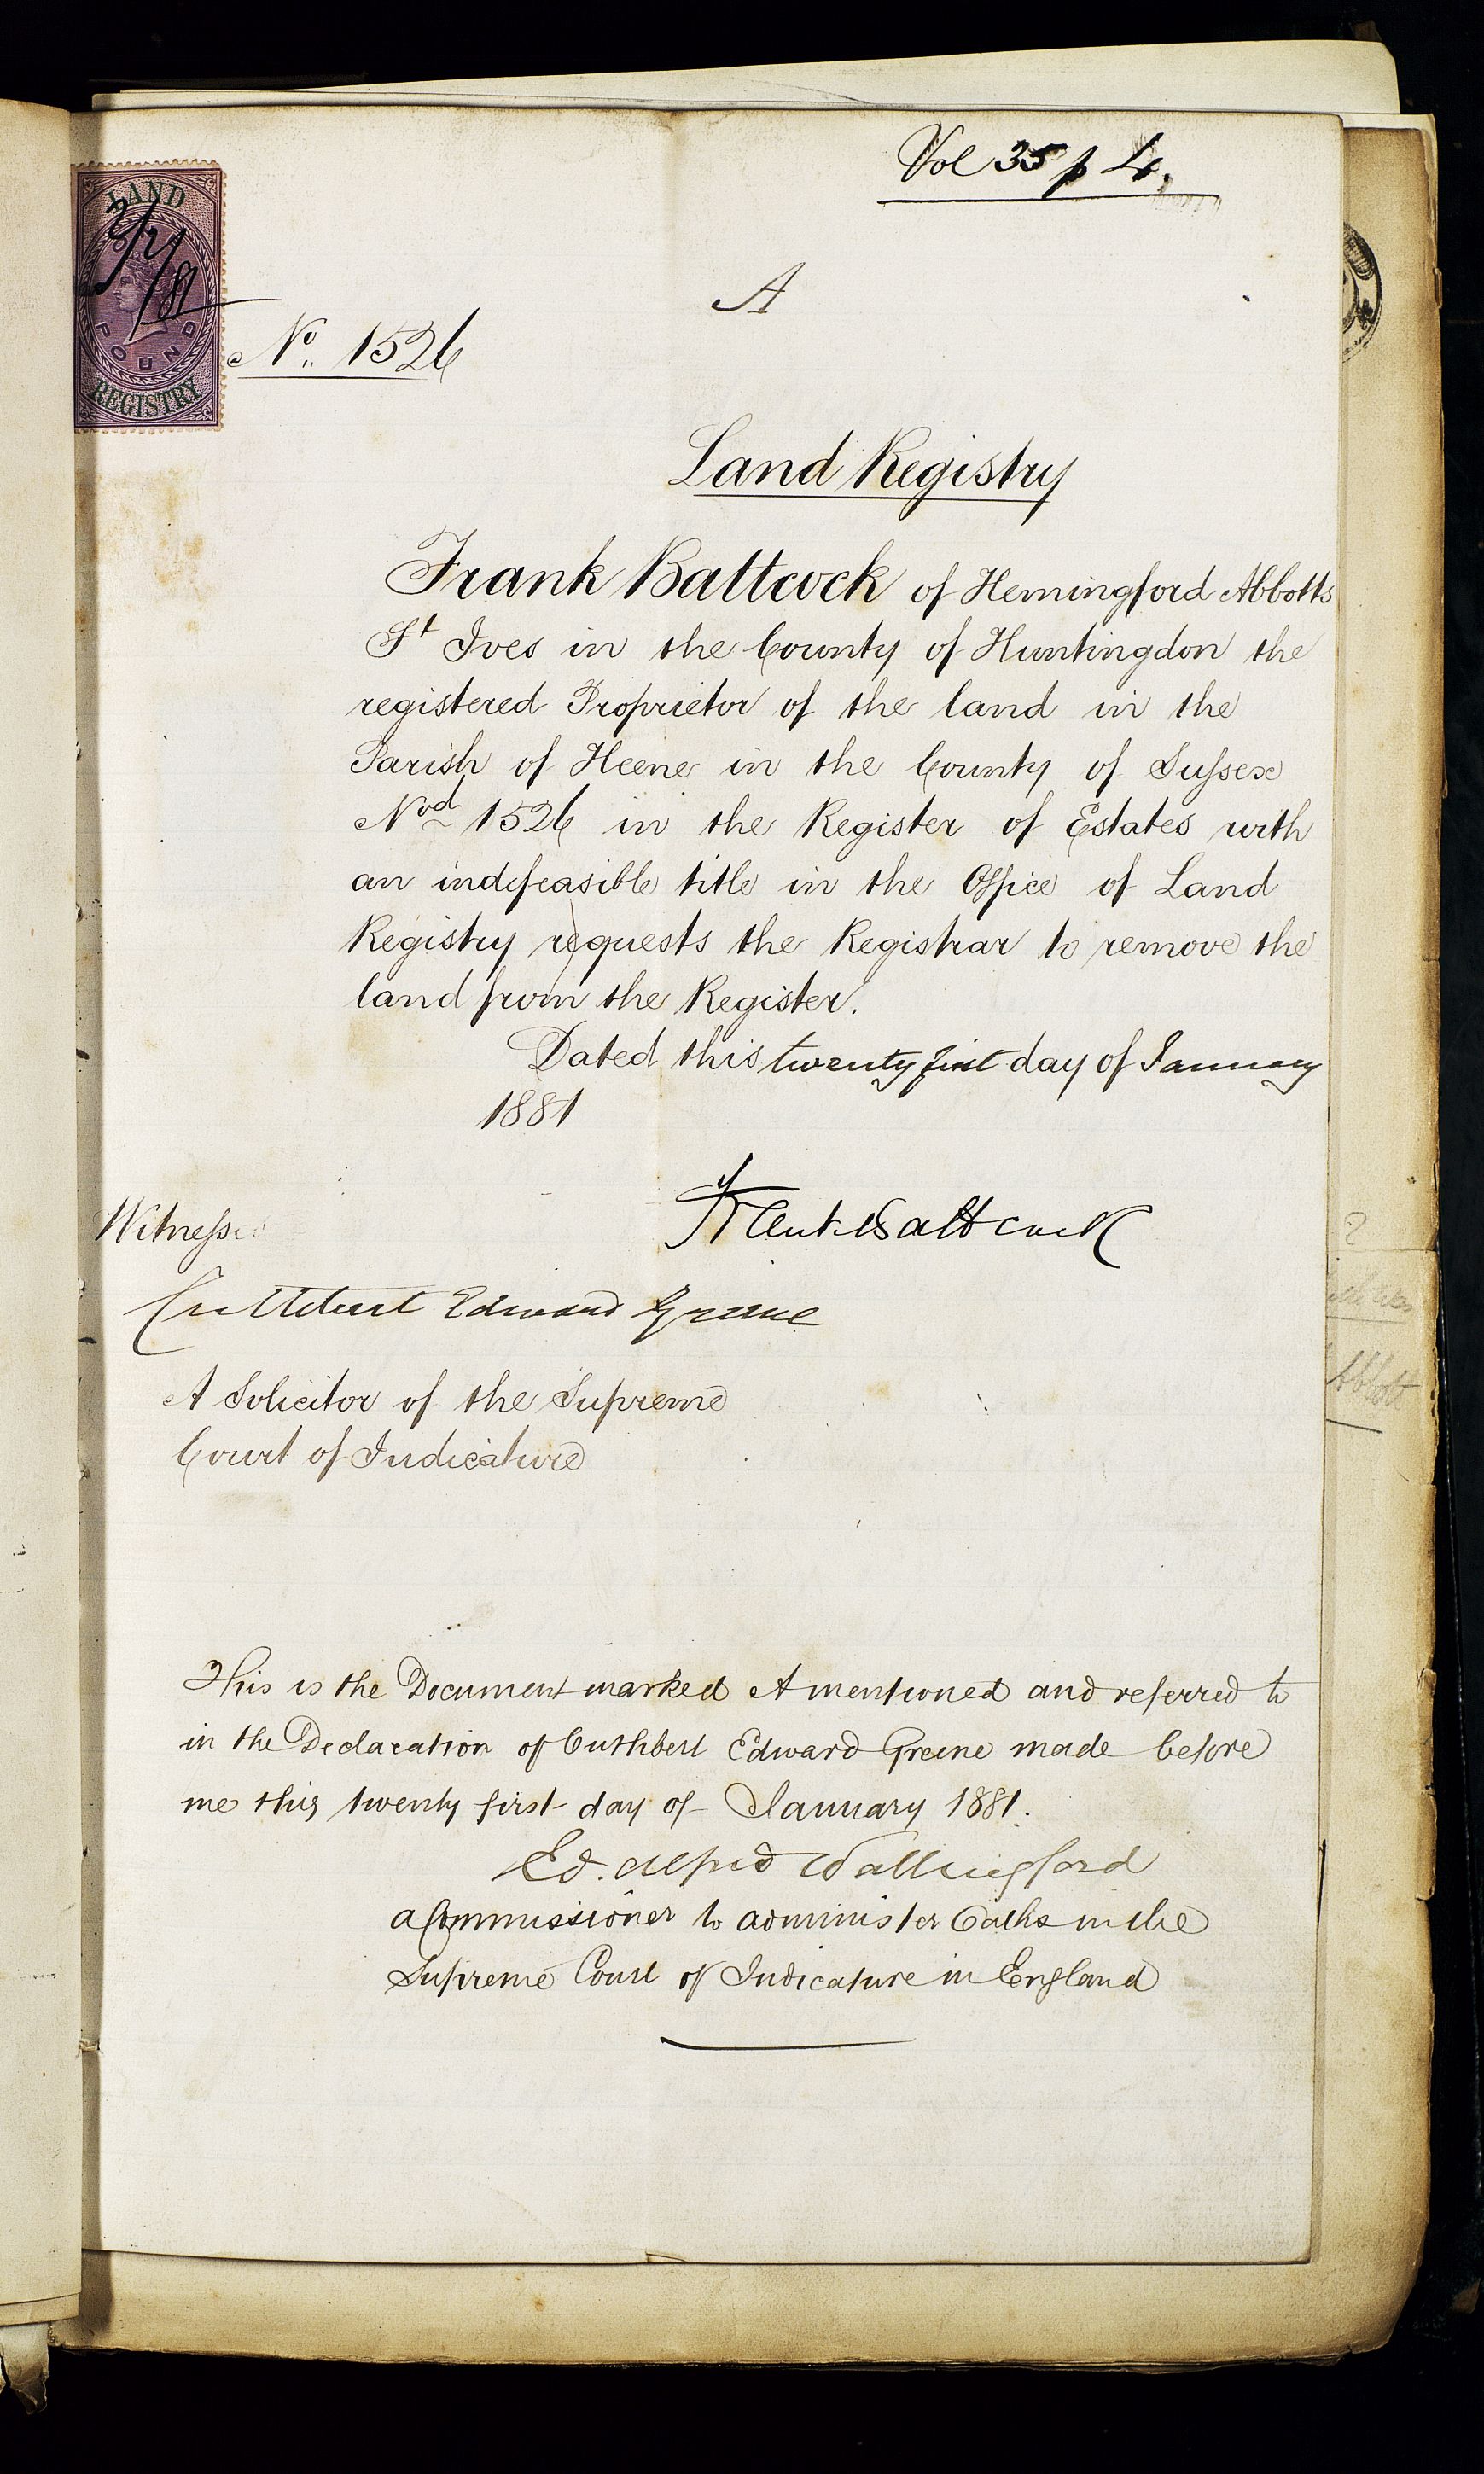 Vol 35 p 4.
LAND
POUND
REGISTRY
A
No. 1526
Land Registry
Frank Battcock of Hemingford Abbotts
St Ives in the County of Huntingdon the
registered Proprietor of the land in the
Parish of Heene in the County of Sussex
Nod 1526 in the Register of Estates with
an indefeasible title in the Office of Land
Registry requests the Registrar to remove the
land from the Register.
Dated this twenty first day of January
1881
Frank Battcock
Witness
Cuthbert Edward Greene
A Solicitor of the Supreme
Court of Judicature
This is the Document marked A mentioned and referred to
in the Declaration of Cuthbert Edward Greene made before
me this twenty first day of January 1881.
Ed. Alfred Wallingford
a Commissioner to administer Oaths in the
Supreme Court of Judicature in England
Abbott